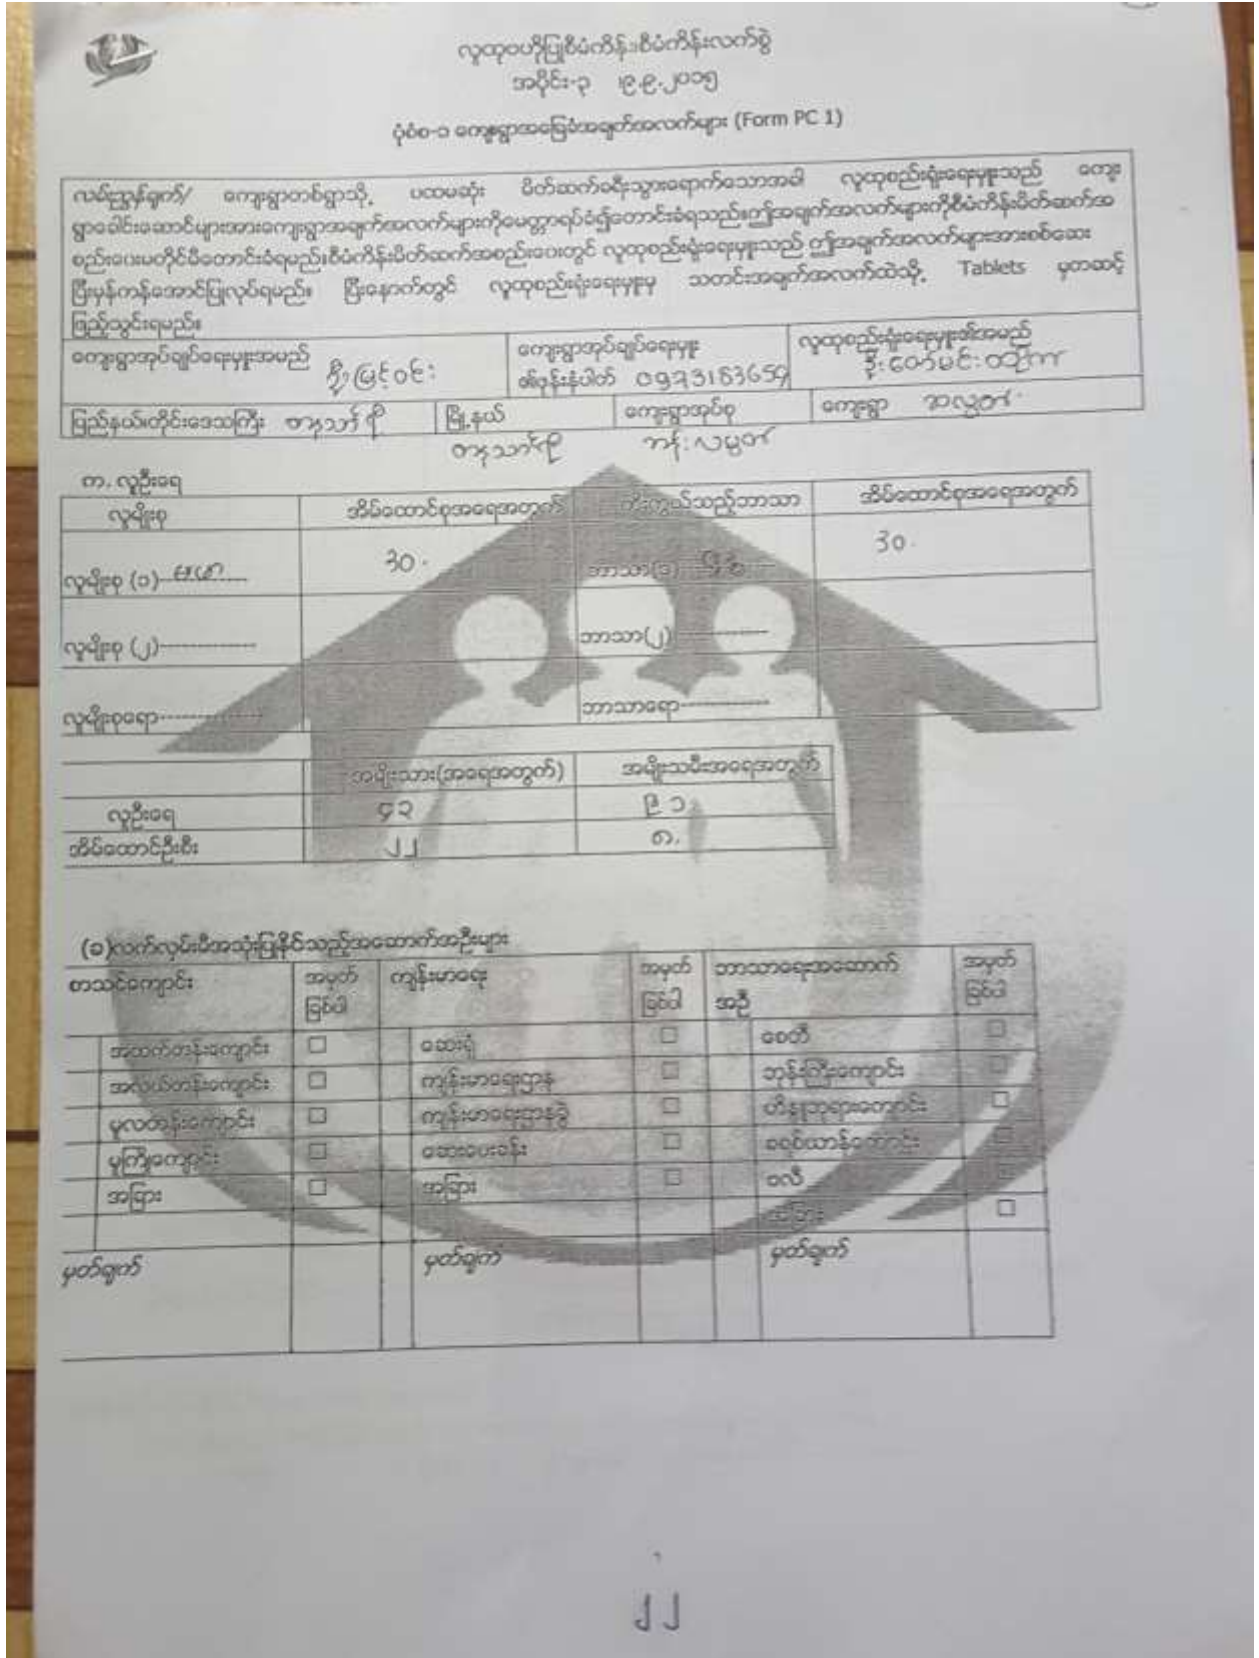 လူထုဗဟိုပြုစီမံကိန်း၊စီမံကိန်းလက်စွဲ
အပိုင်း-၃ ၊၉.၉.၂၀၁၅
ပုံစံစ-၁ ကျေးရွာအခြေခံအချက်အလက်များ (Form PC 1)
လမ်းညွှန်ချက်/ ကျေးရွာတစ်ရွာသို့ ပထမဆုံး မိတ်ဆက်ခရီးသွားရောက်သောအခါ လူထုစည်းရုံးရေးမှူးသည် ကျေး
ရွာခေါင်းဆောင်များအားကျေးရွာအချက်အလက်များကိုမေတ္တာရပ်ခံ၍တောင်းခံရသည်။ဤအချက်အလက်များကိုစီမံကိန်းမိတ်ဆက်အ
စည်းဝေးမတိုင်မီတောင်းခံရမည်။စီမံကိန်းမိတ်ဆက်အစည်းဝေးတွင် လူထုစည်းရုံးရေးမှူးသည် ဤအချက်အလက်များအားစစ်ဆေး
ပြီးမှန်ကန်အောင်ပြုလုပ်ရမည်။ ပြီးနောက်တွင် လူထုစည်းရုံးရေးမှူးမှ သတင်းအချက်အလက်ထဲသို့ Tablets မှတဆင့်
ဖြည့်သွင်းရမည်။
ကျေးရွာအုပ်ချုပ်ရေးမှူးအမည် ဦးမြင့်ဝင်း ကျေးရွာအုပ်ချုပ်ရေးမှူး လူထုစည်းရုံးရေးမှူး၏အမည်
၏ဖုန်းနံပါတ် 0973183659 ဦးဇော်မင်း
ပြည်နယ်၊တိုင်းဒေသကြီး တနင်္သာရီ မြို့နယ် ကျေးရွာအုပ်စု ကျေးရွာ
တနင်္သာရီ
က. လူဦးရေ
လူမျိုးစု အိမ်ထောင်စုအရေအတွက် ကိုးကွယ်သည့်ဘာသာ အိမ်ထောင်စုအရေအတွက်
လူမျိုးစု (၁) ဗမာ ၃၀. ဘာသာ(၁) ဗုဒ္ဓ ၃၀.
လူမျိုးစု (၂)-------------- ဘာသာ(၂)--------------
လူမျိုးစုရော-------------- ဘာသာရော--------------
အမျိုးသား(အရေအတွက်) အမျိုးသမီးအရေအတွက်
လူဦးရေ ၄၃ ၉၁
အိမ်ထောင်ဦးစီး ၂၂ ၈.
(ခ)လက်လှမ်းမီအသုံးပြုနိုင်သည့်အဆောက်အဦးများ
စာသင်ကျောင်း အမှတ်ခြစ်ပါ ကျန်းမာရေး အမှတ်ခြစ်ပါ ဘာသာရေးအဆောက်အဦ အမှတ်ခြစ်ပါ
အထက်တန်းကျောင်း ☐ ဆေးရုံ ☐ စေတီ ☐
အလယ်တန်းကျောင်း ☐ ကျန်းမာရေးဌာန ☐ ဘုန်းကြီးကျောင်း ☐
မူလတန်းကျောင်း ☐ ကျန်းမာရေးဌာနခွဲ ☐ ဟိန္ဒူဘုရားကျောင်း ☐
မူကြိုကျောင်း ☐ ဆေးပေးခန်း ☐ ခရစ်ယာန်ကျောင်း ☐
အခြား ☐ အခြား ☐ ဗလီ ☐
အခြား ☐
မှတ်ချက် မှတ်ချက် မှတ်ချက်
၂၂